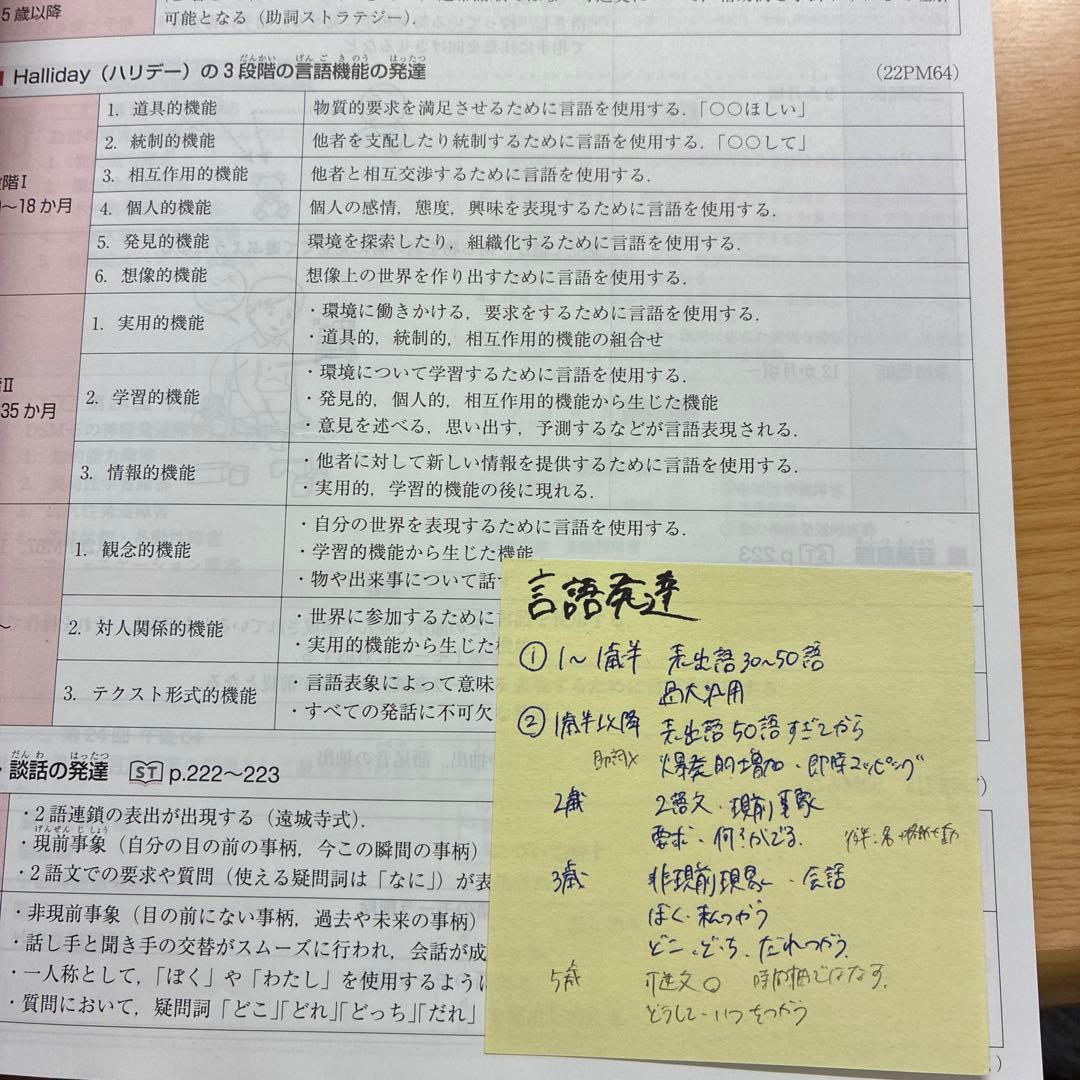 5歳以降
可能となる（助詞ストラテジー）．
Halliday（ハリデー）の3段階の言語機能の発達
だんかい げんごきのう はったつ
（22PM64）
階Ⅰ
～18か月
1. 道具的機能 物質的要求を満足させるために言語を使用する．「○○ほしい」
2. 統制的機能 他者を支配したり統制するために言語を使用する．「○○して」
3. 相互作用的機能 他者と相互交渉するために言語を使用する．
4. 個人的機能 個人の感情，態度，興味を表現するために言語を使用する．
5. 発見的機能 環境を探索したり，組織化するために言語を使用する．
6. 想像的機能 想像上の世界を作り出すために言語を使用する．
Ⅱ
35か月
1. 実用的機能 ・環境に働きかける，要求をするために言語を使用する．
・道具的，統制的，相互作用的機能の組合せ
2. 学習的機能 ・環境について学習するために言語を使用する．
・発見的，個人的，相互作用的機能から生じた機能
・意見を述べる，思い出す，予測するなどが言語表現される．
3. 情報的機能 ・他者に対して新しい情報を提供するために言語を使用する．
・実用的，学習的機能の後に現れる．
～
1. 観念的機能 ・自分の世界を表現するために言語を使用する．
・学習的機能から生じた機能
・物や出来事について話す
2. 対人関係的機能 ・世界に参加するために
・実用的機能から生じた機
3. テクスト形式的機能 ・言語表象によって意味
・すべての発話に不可欠
・談話の発達 ST p.222～223
だんわ はったつ
・2語連鎖の表出が出現する（遠城寺式）．
げんぜんじしょう
・現前事象（自分の目の前の事柄，今この瞬間の事柄）
・2語文での要求や質問（使える疑問詞は「なに」）が表
・非現前事象（目の前にない事柄，過去や未来の事柄）
・話し手と聞き手の交替がスムーズに行われ，会話が成
・一人称として，「ぼく」や「わたし」を使用するように
・質問において，疑問詞「どこ」「どれ」「どっち」「だれ」
言語発達
① 1～1歳半 表出語30～50語
過大汎用
② 1歳半以降 表出語50語すぎてから
助詞× 爆発的増加・即時マッピング
2歳 2語文・現前事象
要求・何？がでる．
3歳 非現前現象・会話
ぼく・私つかう
どこ、どっち、だれつかう．
5歳
どうして・いつをつかう